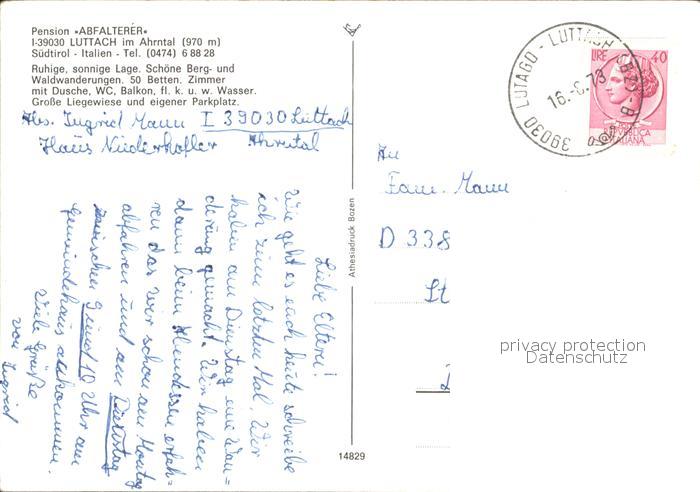 Pension »ABFALTERER«
I-39030 LUTTACH im Ahrntal (970 m)
Südtirol - Italien - Tel. (0474) 6 88 28
Ruhige, sonnige Lage. Schöne Berg- und
Waldwanderungen. 50 Betten. Zimmer
mit Dusche, WC, Balkon, fl. k. u. w. Wasser.
Große Liegewiese und eigener Parkplatz.
Abs. Ingrid Mann I 39030 Luttach
Haus Niederkofler Ahrntal
Liebe Eltern!
Wie geht es euch heute schreibe
ich zum letzten Mal. Wir
haben am Dienstag eine Wan=
derung gemacht. Wir haben
dann beim Abendessen erfah=
ren das wir schon am Montag
abfahren und am Dienstag
zwischen 9 und 10 Uhr am
Gemeindehaus ankommen.
Viele Grüße
von Ingrid
Athesiadruck Bozen
14829
39030 LUTAGO - LUTTACH (BZ)
16.-8.73
LIRE 40
REPUBBLICA
ITALIANA
An
Fam. Mann
D 338
St
privacy protection
Datenschutz